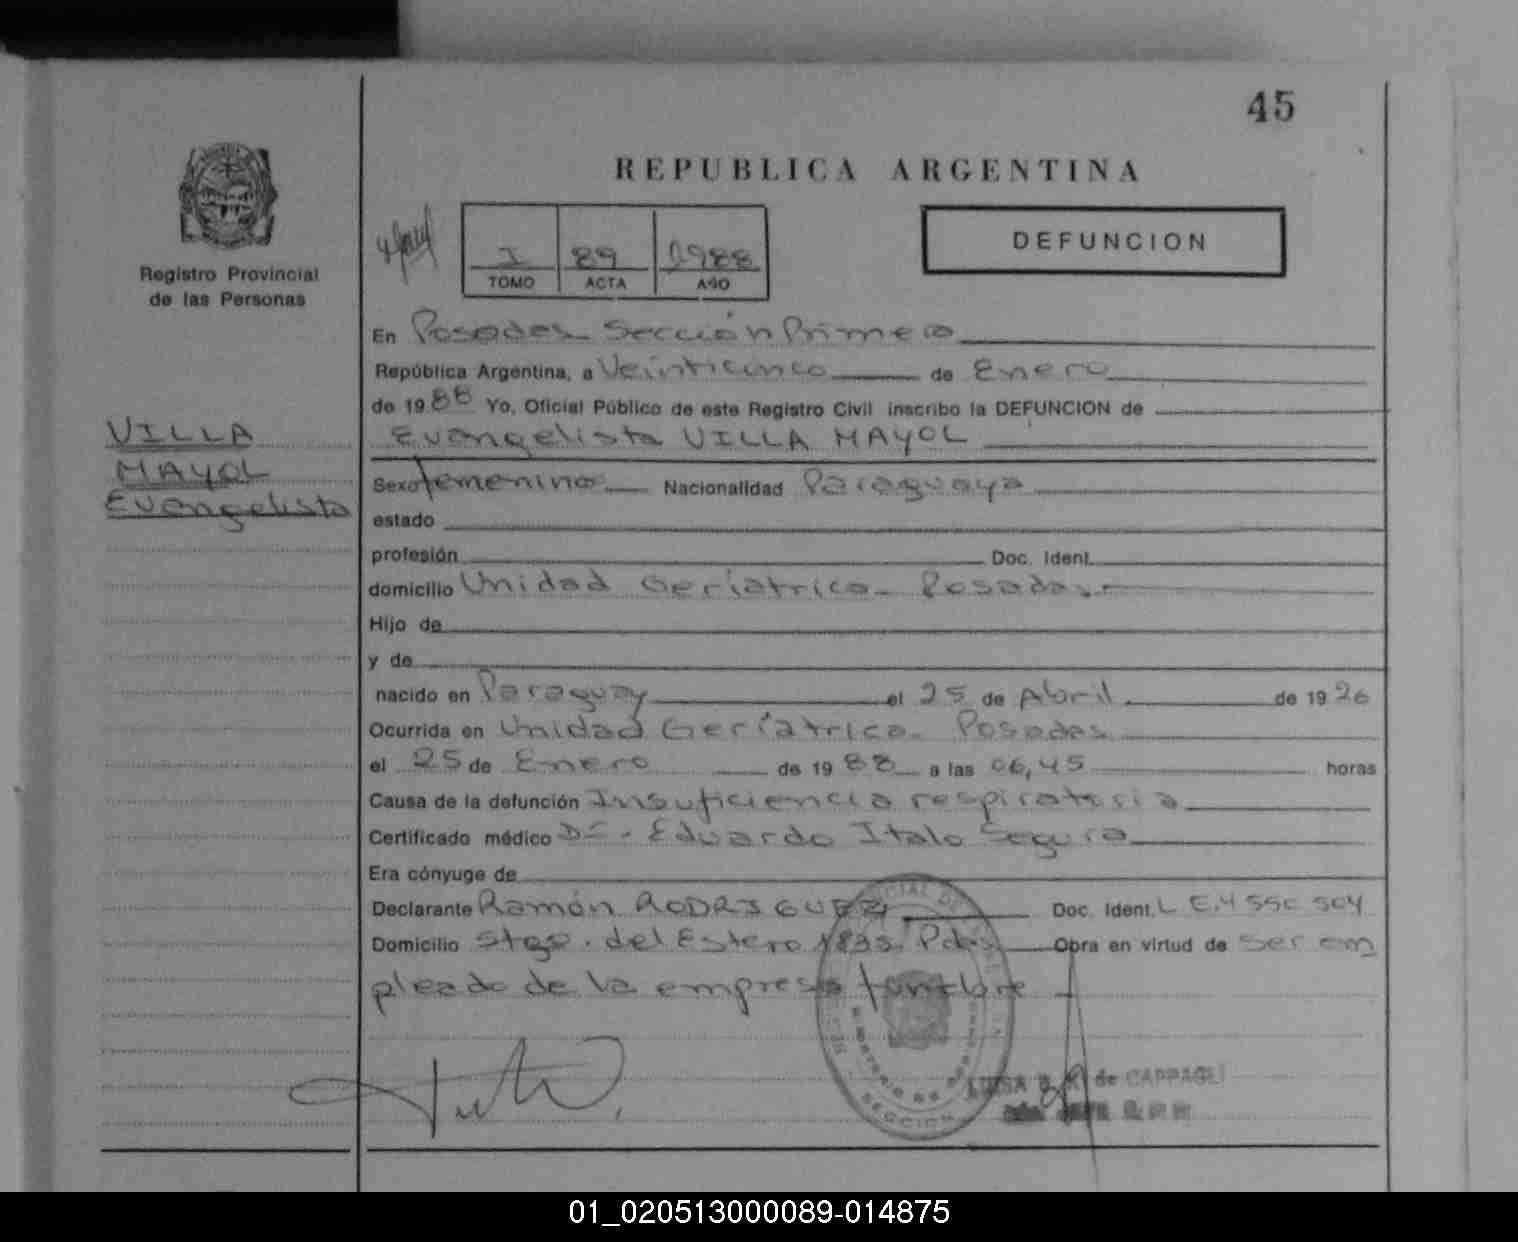 45
REPUBLICA ARGENTINA
Registro Provincial
de las Personas
I 89 1988
TOMO ACTA AÑO
DEFUNCION
En Posadas Sección Primera
República Argentina, a Veinticinco de Enero
de 1988 Yo, Oficial Público de este Registro Civil inscribo la DEFUNCION de
VILLA
MAYOL
Evangelista
Evangelista VILLA MAYOL
Sexo femenino Nacionalidad Paraguaya
estado
profesión Doc. Ident.
domicilio Unidad Geriatrica - Posadas.-
Hijo de
y de
nacido en Paraguay el 25 de Abril de 1926
Ocurrida en Unidad Geríatrica - Posadas
el 25 de Enero de 1988 a las 06,45 horas
Causa de la defunción Insuficiencia respiratoria
Certificado médico Dr. Eduardo Italo Segura
Era cónyuge de
Declarante Ramón RODRIGUEZ Doc. Ident. L E.4 550 504
Domicilio Stgo. del Estero 1833. Pdas Obra en virtud de ser em
pleado de la empresa funebre
LUISA B. K. de CAPPAGLI
SECCION
01_020513000089-014875